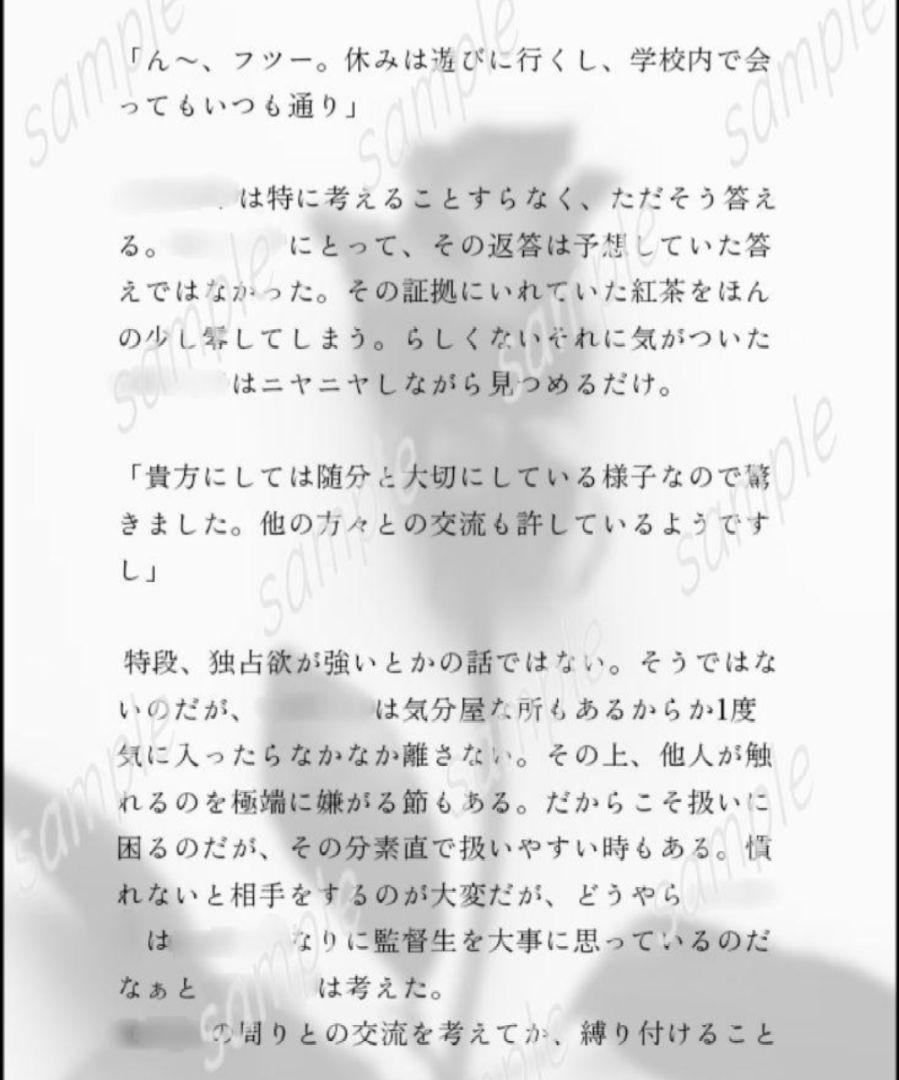 「ん～、フツー。休みは遊びに行くし、学校内で会
ってもいつも通り」
は特に考えることすらなく、ただそう答え
る。 にとって、その返答は予想していた答
えではなかった。その証拠にいれていた紅茶をほん
の少し零してしまう。らしくないそれに気がついた
はニヤニヤしながら見つめるだけ。
「貴方にしては随分と大切にしている様子なので驚
きました。他の方々との交流も許しているようです
し」
特段、独占欲が強いとかの話ではない。そうではな
いのだが、 は気分屋な所もあるからか1度
気に入ったらなかなか離さない。その上、他人が触
れるのを極端に嫌がる節もある。だからこそ扱いに
困るのだが、その分素直で扱いやすい時もある。慣
れないと相手をするのが大変だが、どうやら
は なりに監督生を大事に思っているのだ
なぁと は考えた。
の周りとの交流を考えてか、縛り付けること
sample
sample
sample
sample
sample
sample
sample
sample
sample
sample
sample
sample
sample